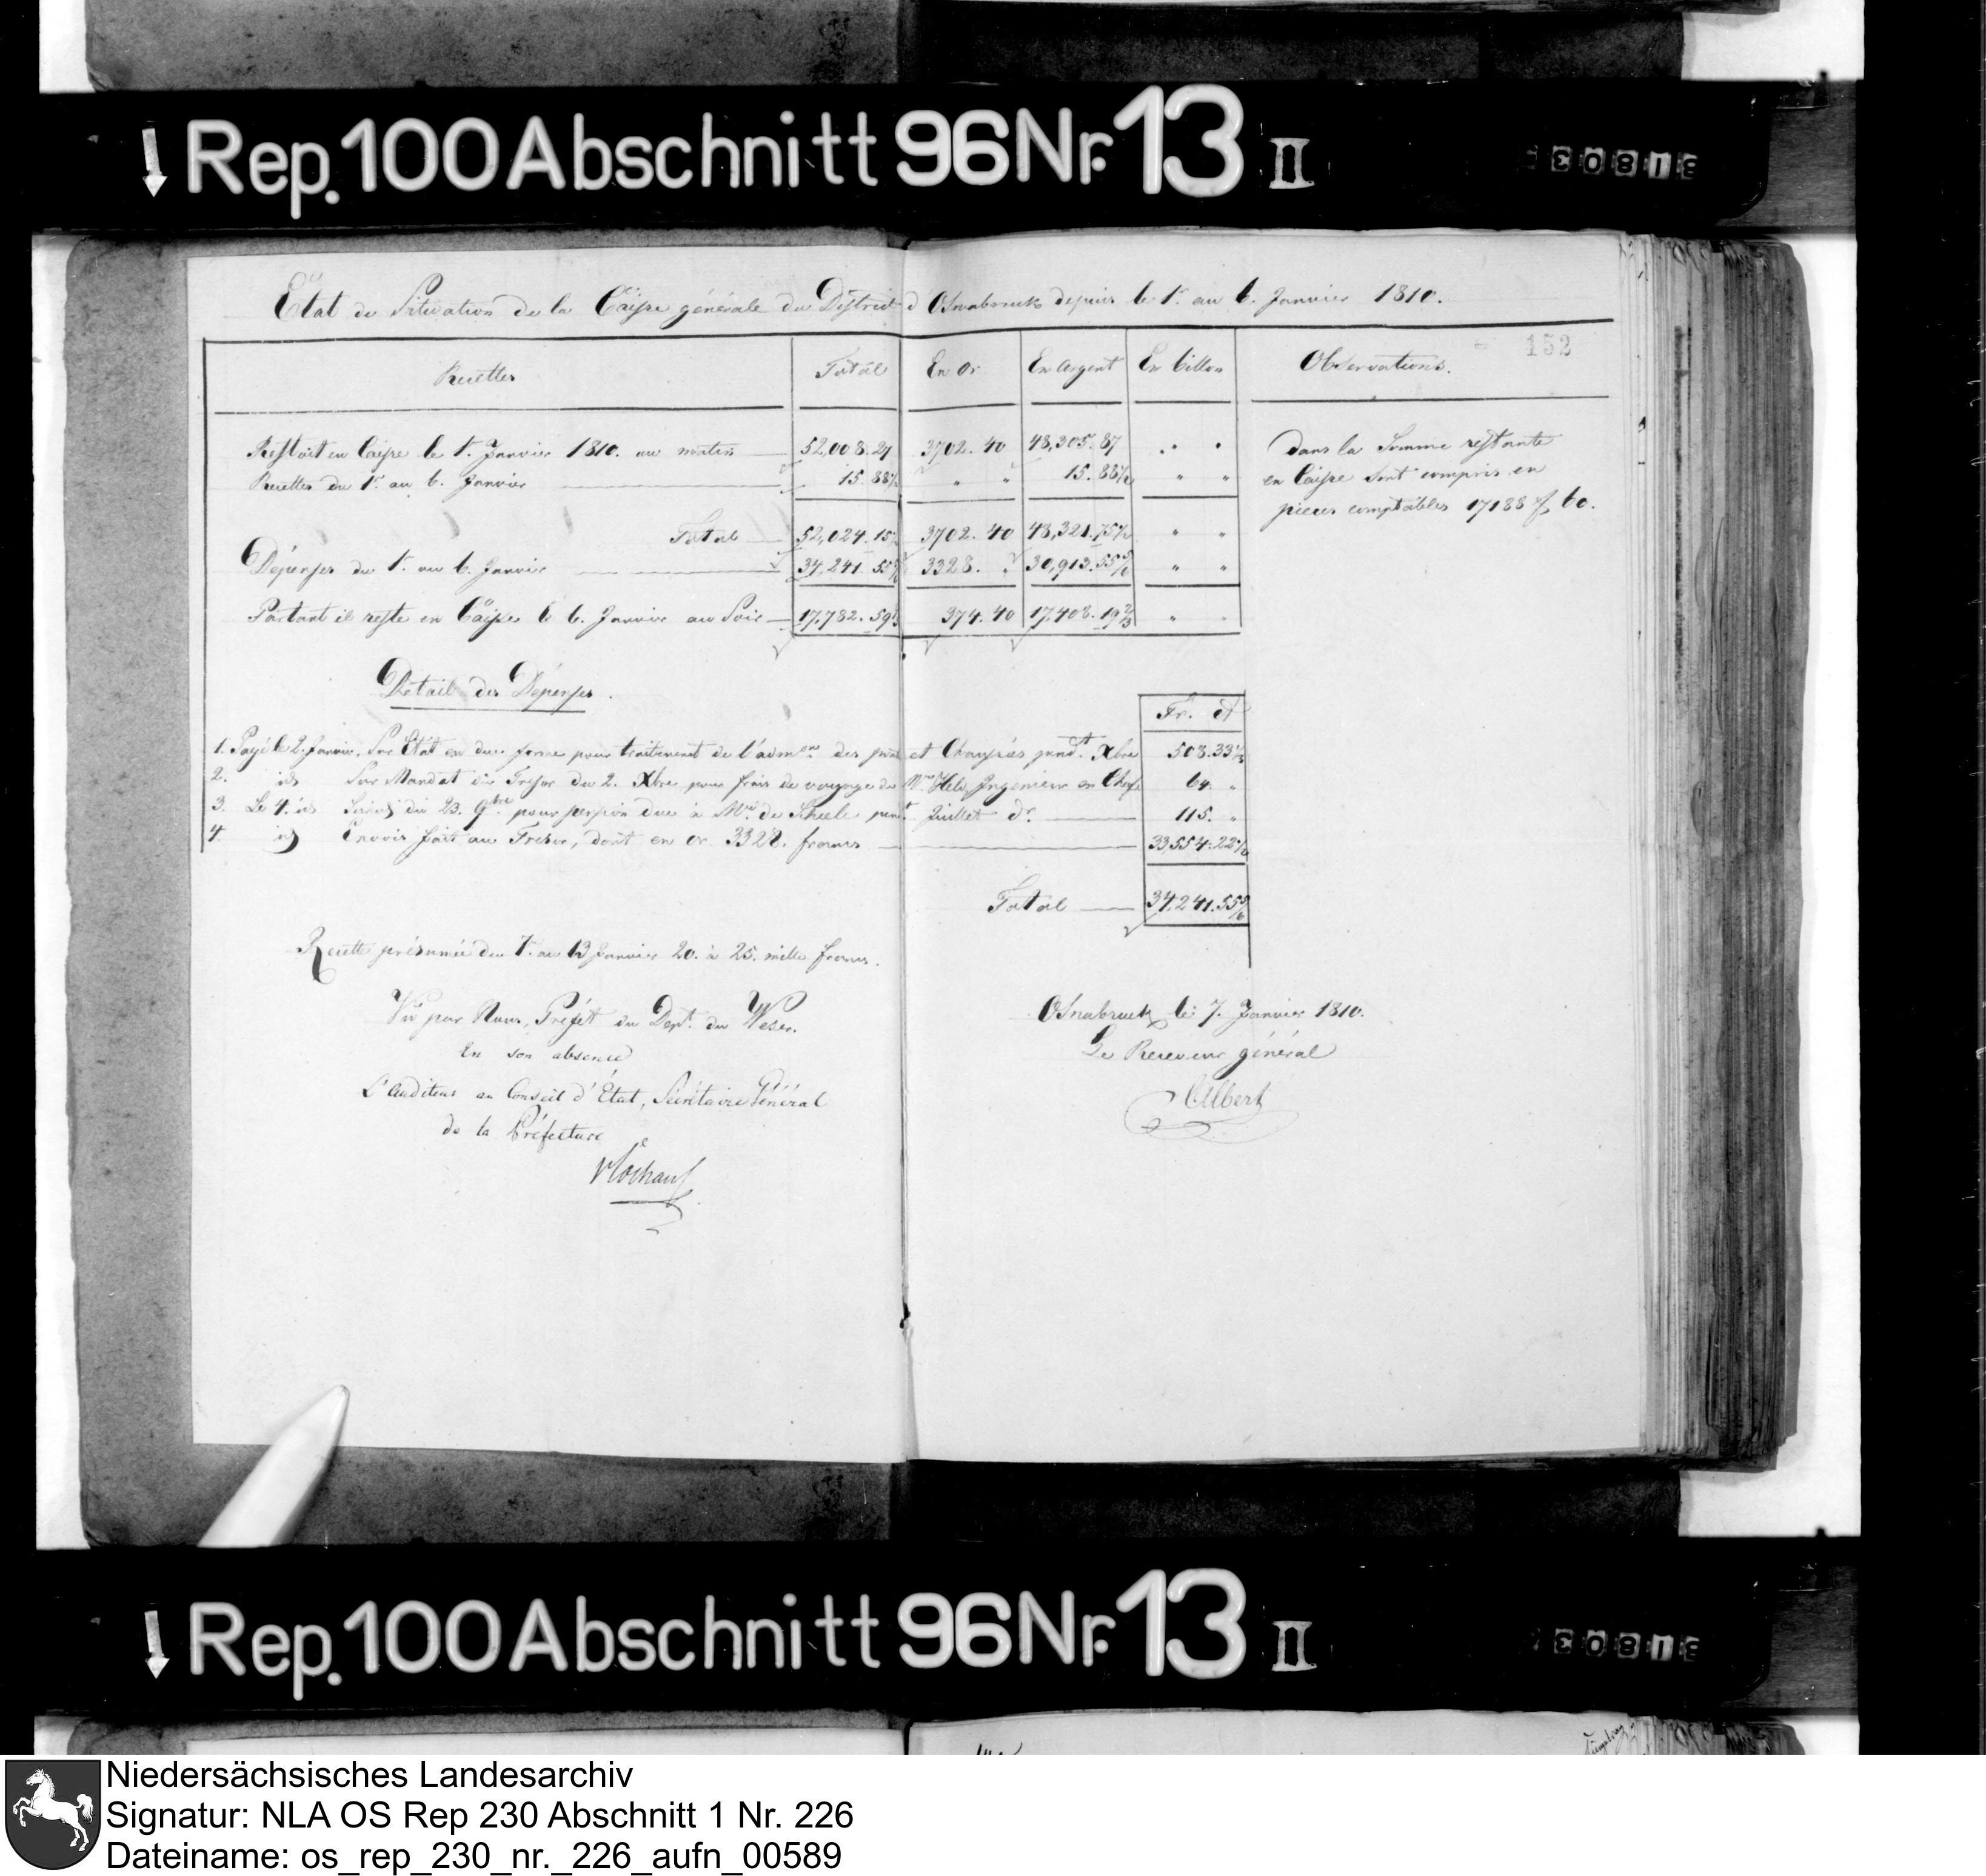 Rep. 100 Abschnitt 96 Nr. 13 II
État de Situation de la Caisse générale du District d'Osnabruck depuis le 1r. au 6. Janvier 1810.
152
Recettes Total En Or En Argent En billon Observations.
Restait en Caisse le 1r. Janvier 1810. au matin 52,008.27 3702.40 48,305.87 " "
Recettes du 1r. au 6. Janvier 15.88½ " " 15.88½ " "
Total 52,024.15½ 3702.40 48,321.75½ " "
Dépenses du 1r. au 6. Janvier 34,241.55⅚ 3328. " 30,913.55⅚ " "
Partant il reste en Caisse le 6. Janvier au Soir 17,782.59⅔ 374.40 17,408.19⅔ " "
dans la Somme restante
en Caisse sont compris en
pieces comptables 17188 f 60.
Détail des Dépenses.
Fr. Ct
1. Payé le 2. Janvier, Sur État en due forme pour traitement de l'admon. des ponts et Chaussées pendt. Xbre 508.33⅓
2. id Sur Mandat du Trésor du 2. Xbre pour frais de voyage du Mr. Ingenieur en Chef 64. "
3. Le 4. id du 23. 9bre. pour pension due à Mr. de Scheele pent. Juillet dr. 115. "
4. id Envoir fait au Tresor, dont en or 3328. francs 33,554.22½
Total 34,241.55⅚
Recette présumée du 7. au 13 Janvier 20. à 25. mille francs.
Vu par Nous, Préfet du Dept. du Weser.
En son absence
L'auditeur au Conseil d'État, Secrétaire Général
de la Préfecture
Osnabruck le 7. Janvier 1810.
Le Receveur général
Albert
Rep. 100 Abschnitt 96 Nr. 13 II
Niedersächsisches Landesarchiv
Signatur: NLA OS Rep 230 Abschnitt 1 Nr. 226
Dateiname: os_rep_230_nr._226_aufn_00589